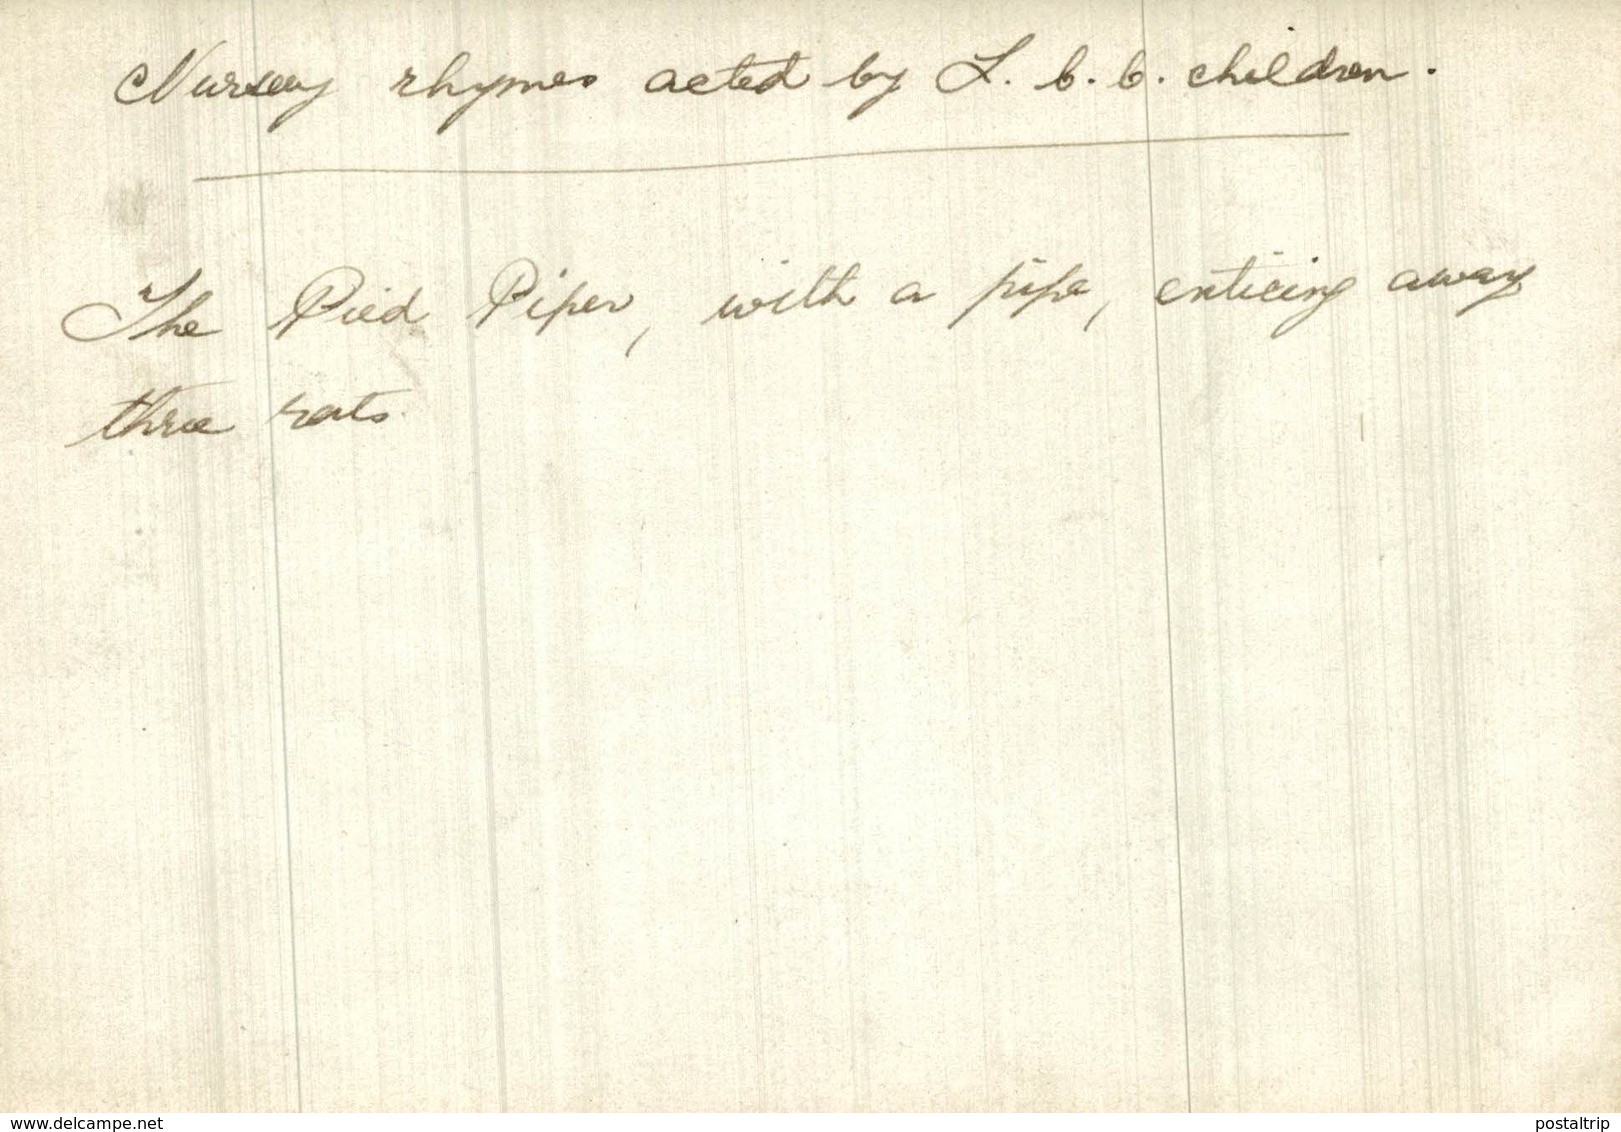 Nursery rhymes acted by L. b. b. children.
The Pied Piper, with a pipe, enticing away
three rats.
www.delcampe.net
postaltrip